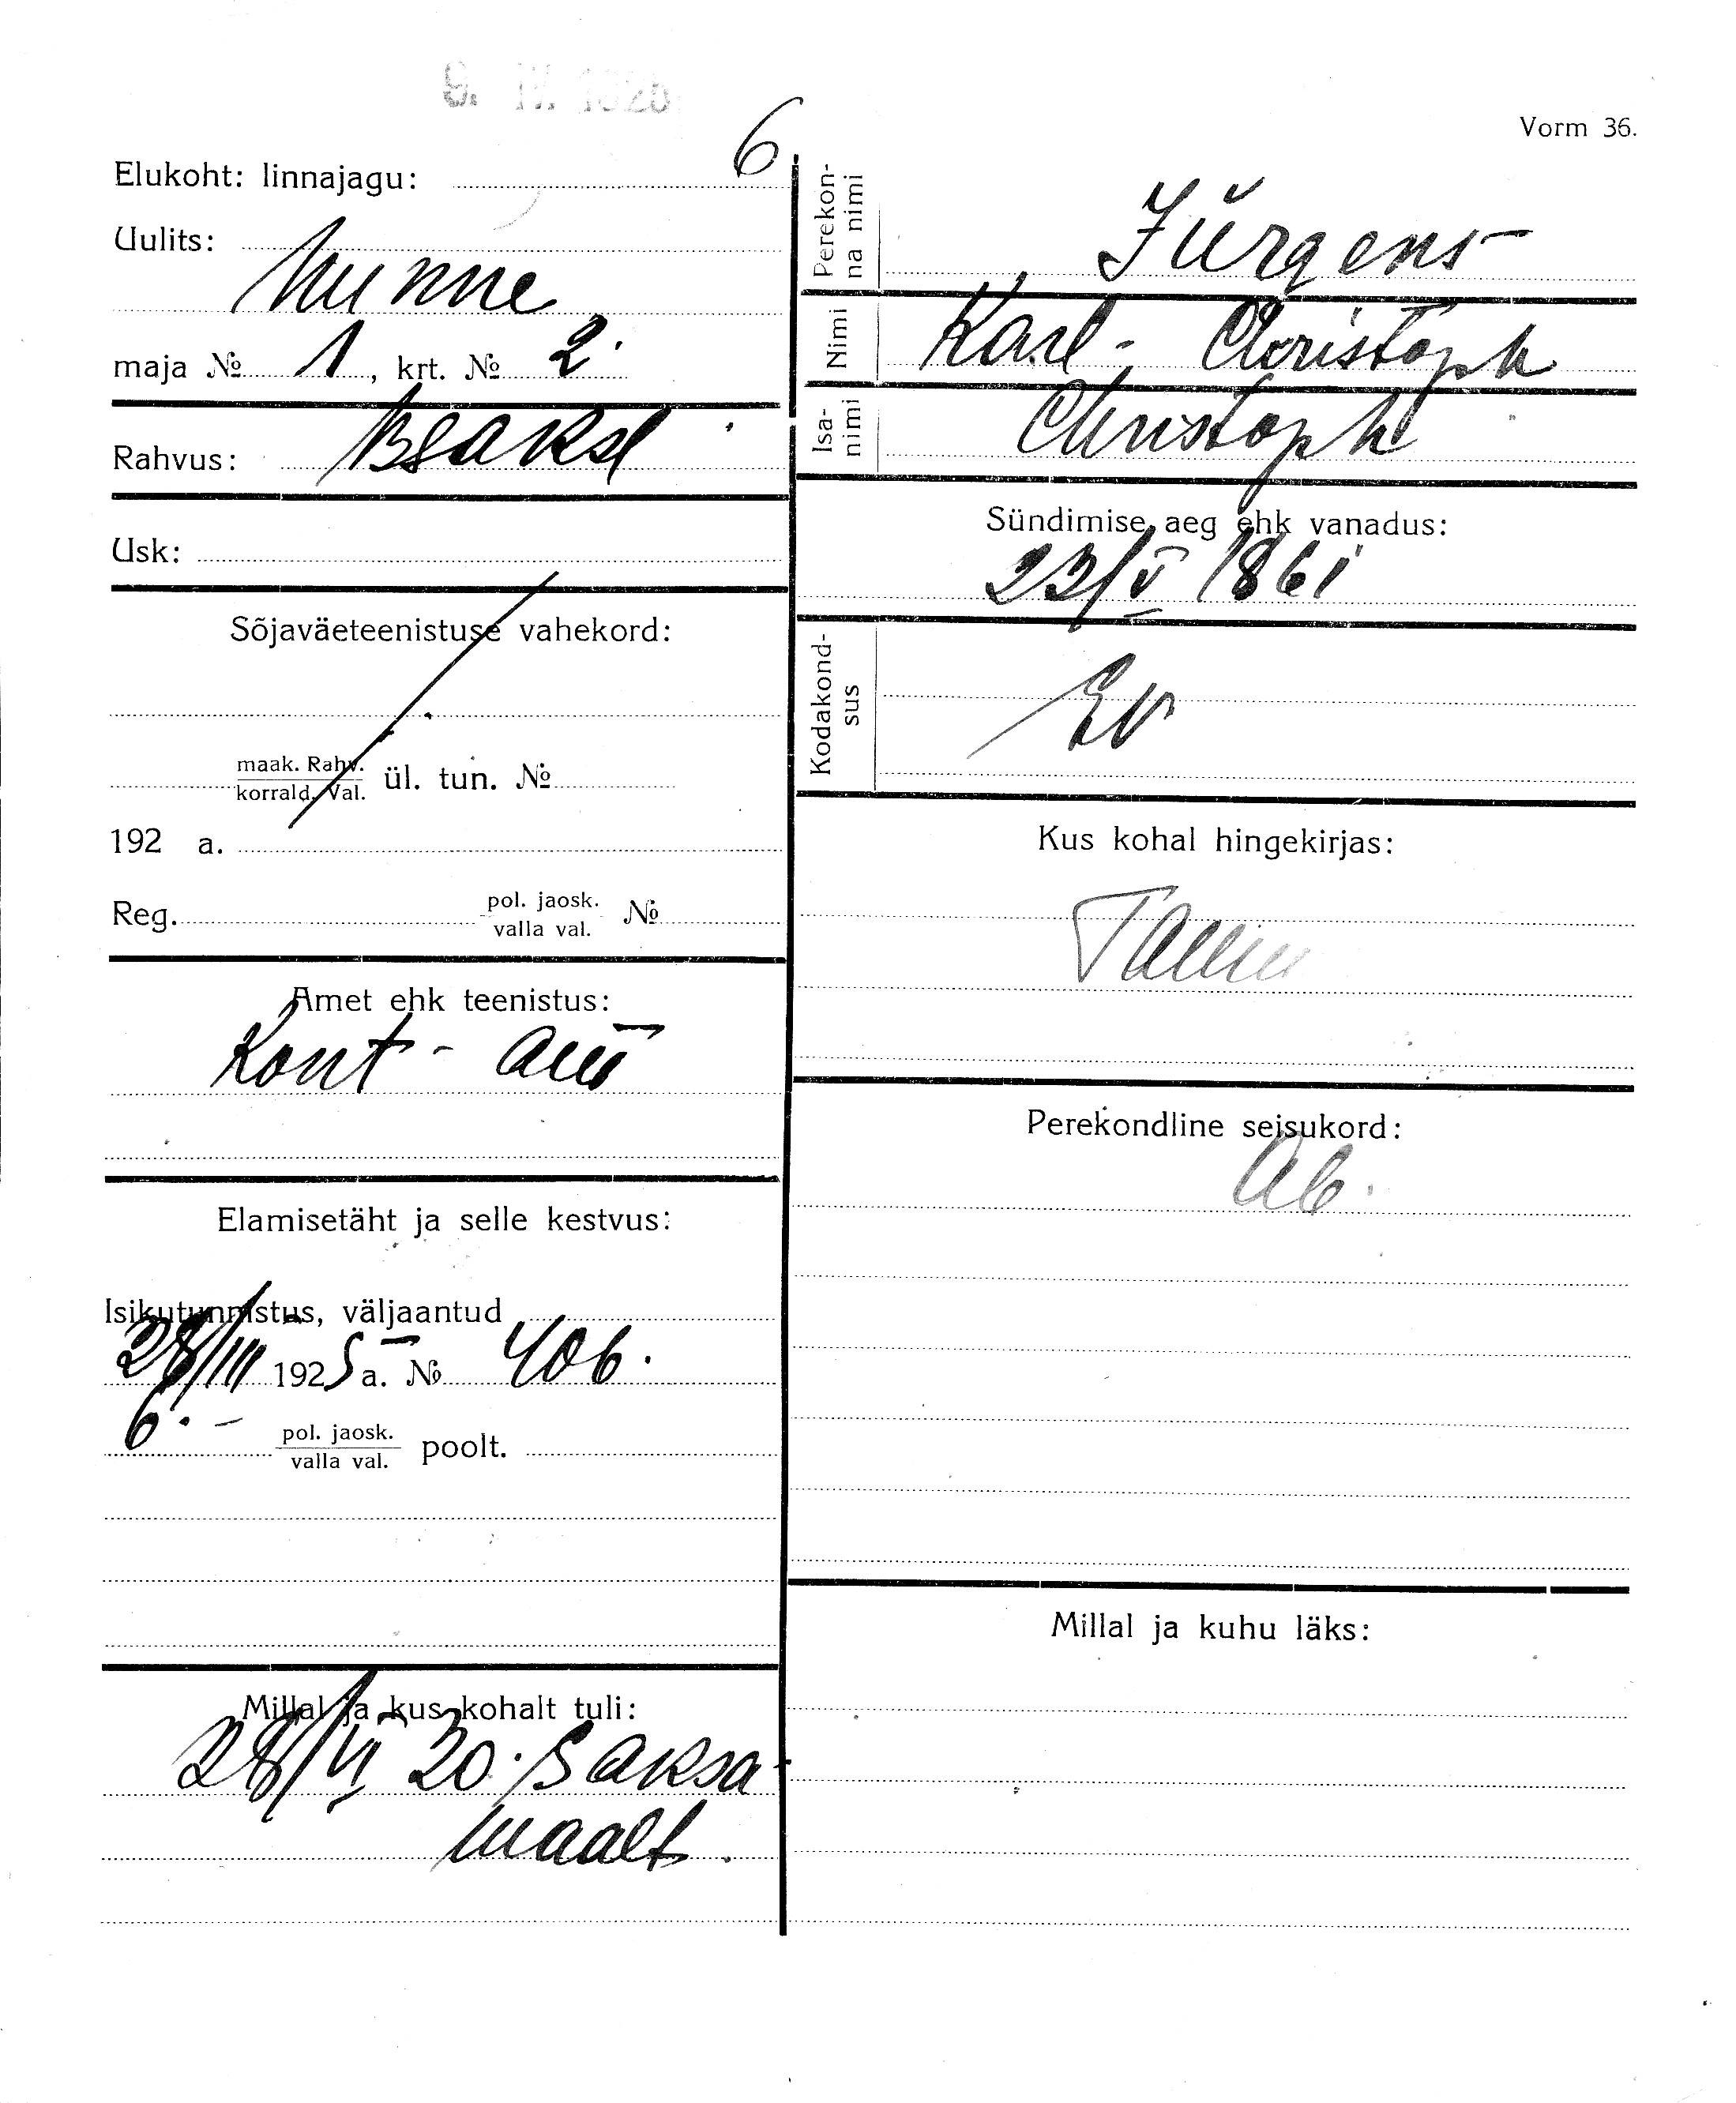 9. IV. 1925
Vorm 36.
Elukoht: linnajagu: 6
Uulits:
Nunne
maja № 1, krt. № 2.
Rahvus: Saksl
Usk:
Sõjaväeteenistuse vahekord:
maak. Rahv.
korrald. Val. ül. tun. №
192 a.
Reg. pol. jaosk.
valla val. №
Amet ehk teenistus:
Kont - am
Elamisetäht ja selle kestvus:
Isikutunnistus, väljaantud
28/III 1925 a. № 406.
6. - pol. jaosk.
valla val. poolt.
Millal ja kus kohalt tuli:
28/VI 20. Saksa-
maalt.
Perekon-
na nimi
Jürgens
Nimi
Karl - Christoph
Isa-
nimi
Christoph
Sündimise aeg ehk vanadus:
23/V 1861
Kodakond-
sus
Ev
Kus kohal hingekirjas:
Tallin
Perekondline seisukord:
Ab.
Millal ja kuhu läks: